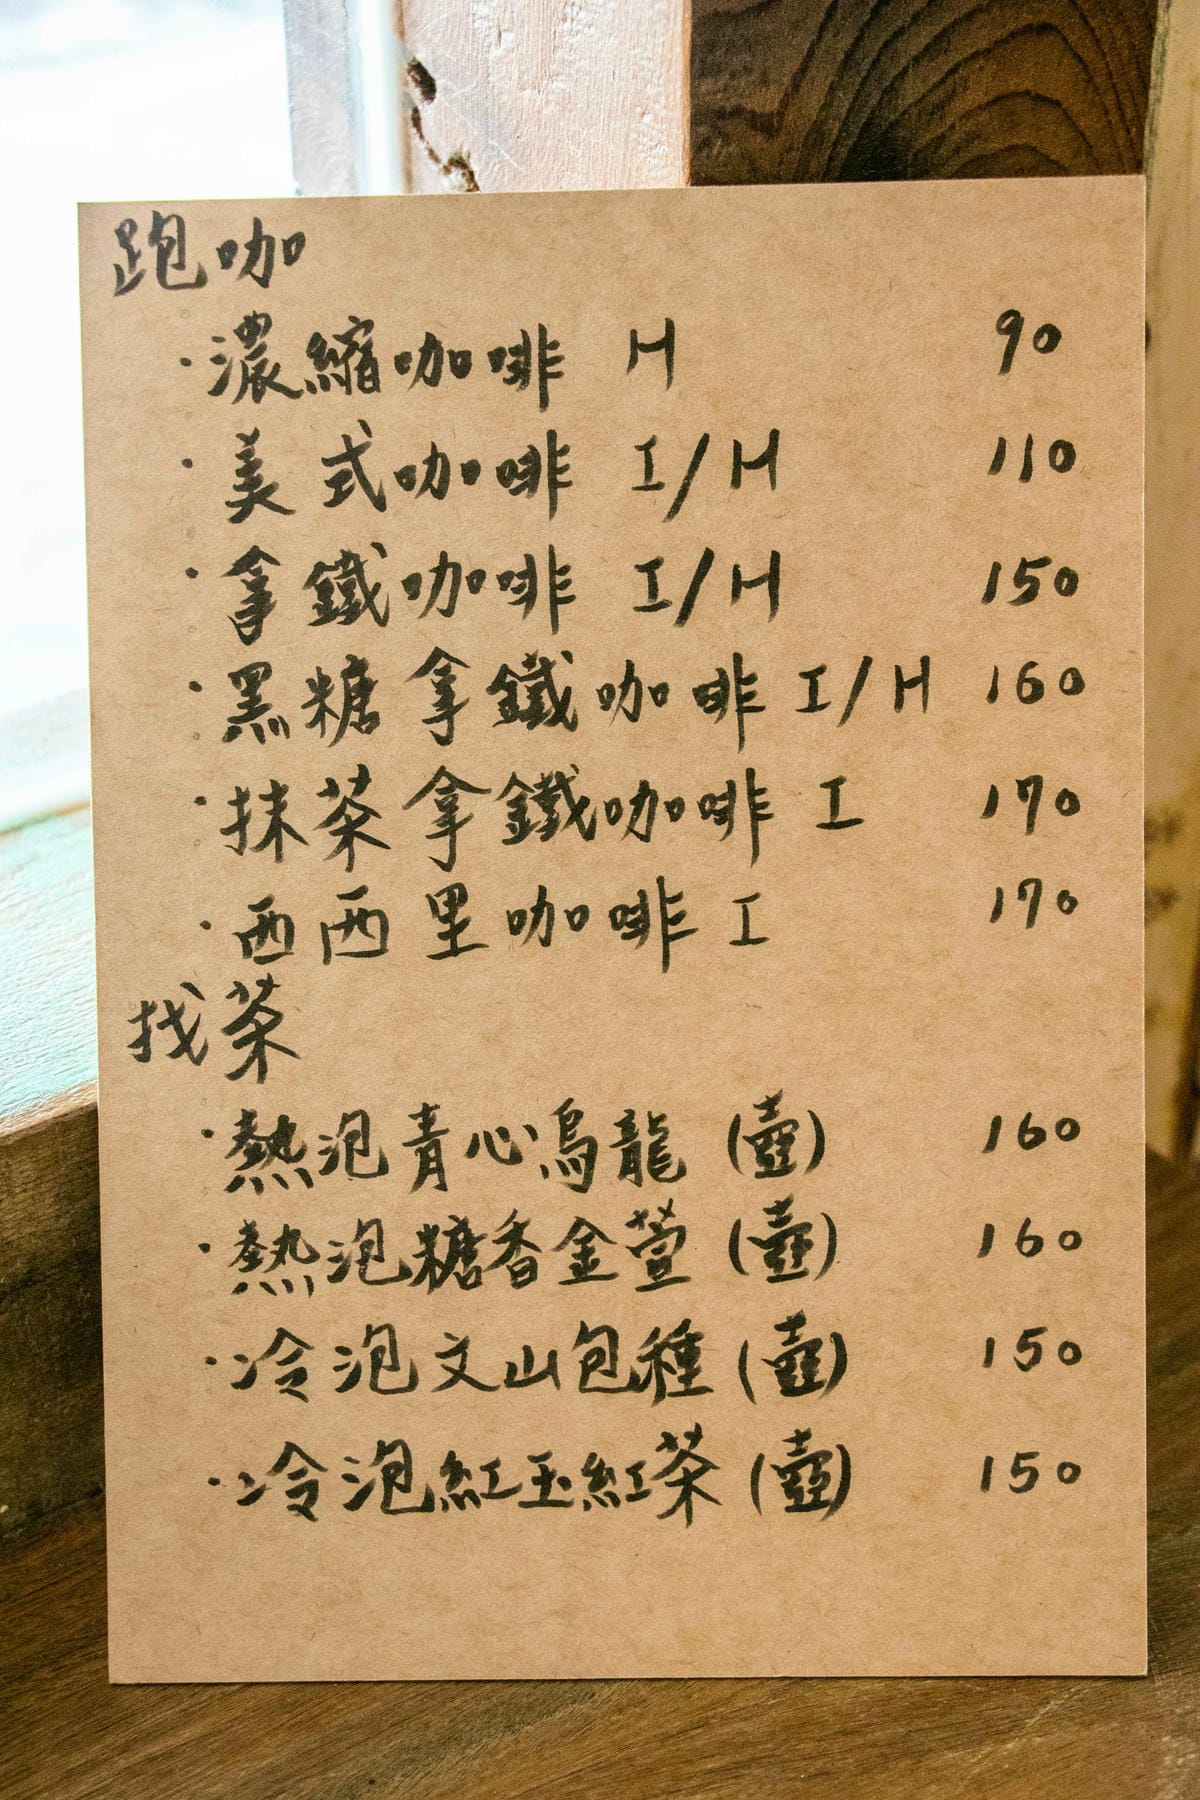 跑咖
·濃縮咖啡 H 90
·美式咖啡 I/H 110
·拿鐵咖啡 I/H 150
·黑糖拿鐵咖啡 I/H 160
·抹茶拿鐵咖啡 I 170
·西西里咖啡 I 170
找茶
·熱泡青心烏龍 (壺) 160
·熱泡糖香金萱 (壺) 160
·冷泡文山包種 (壺) 150
·冷泡紅玉紅茶 (壺) 150